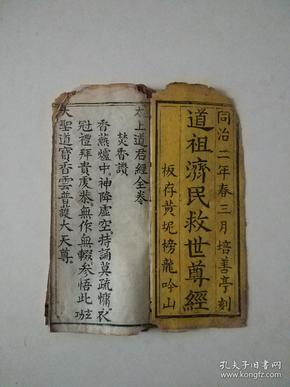 同治二年春三月培善亭刻
道祖濟民救世尊經
板存黄坭榜龍吟山
太上道君經全卷
焚香讚
香爇爐中神降虛空持誦莫疏慵衣
冠禮拜貴虔恭無作無輟参悟此玅功
大聖道寶香雲普護大天尊
孔夫子旧书网